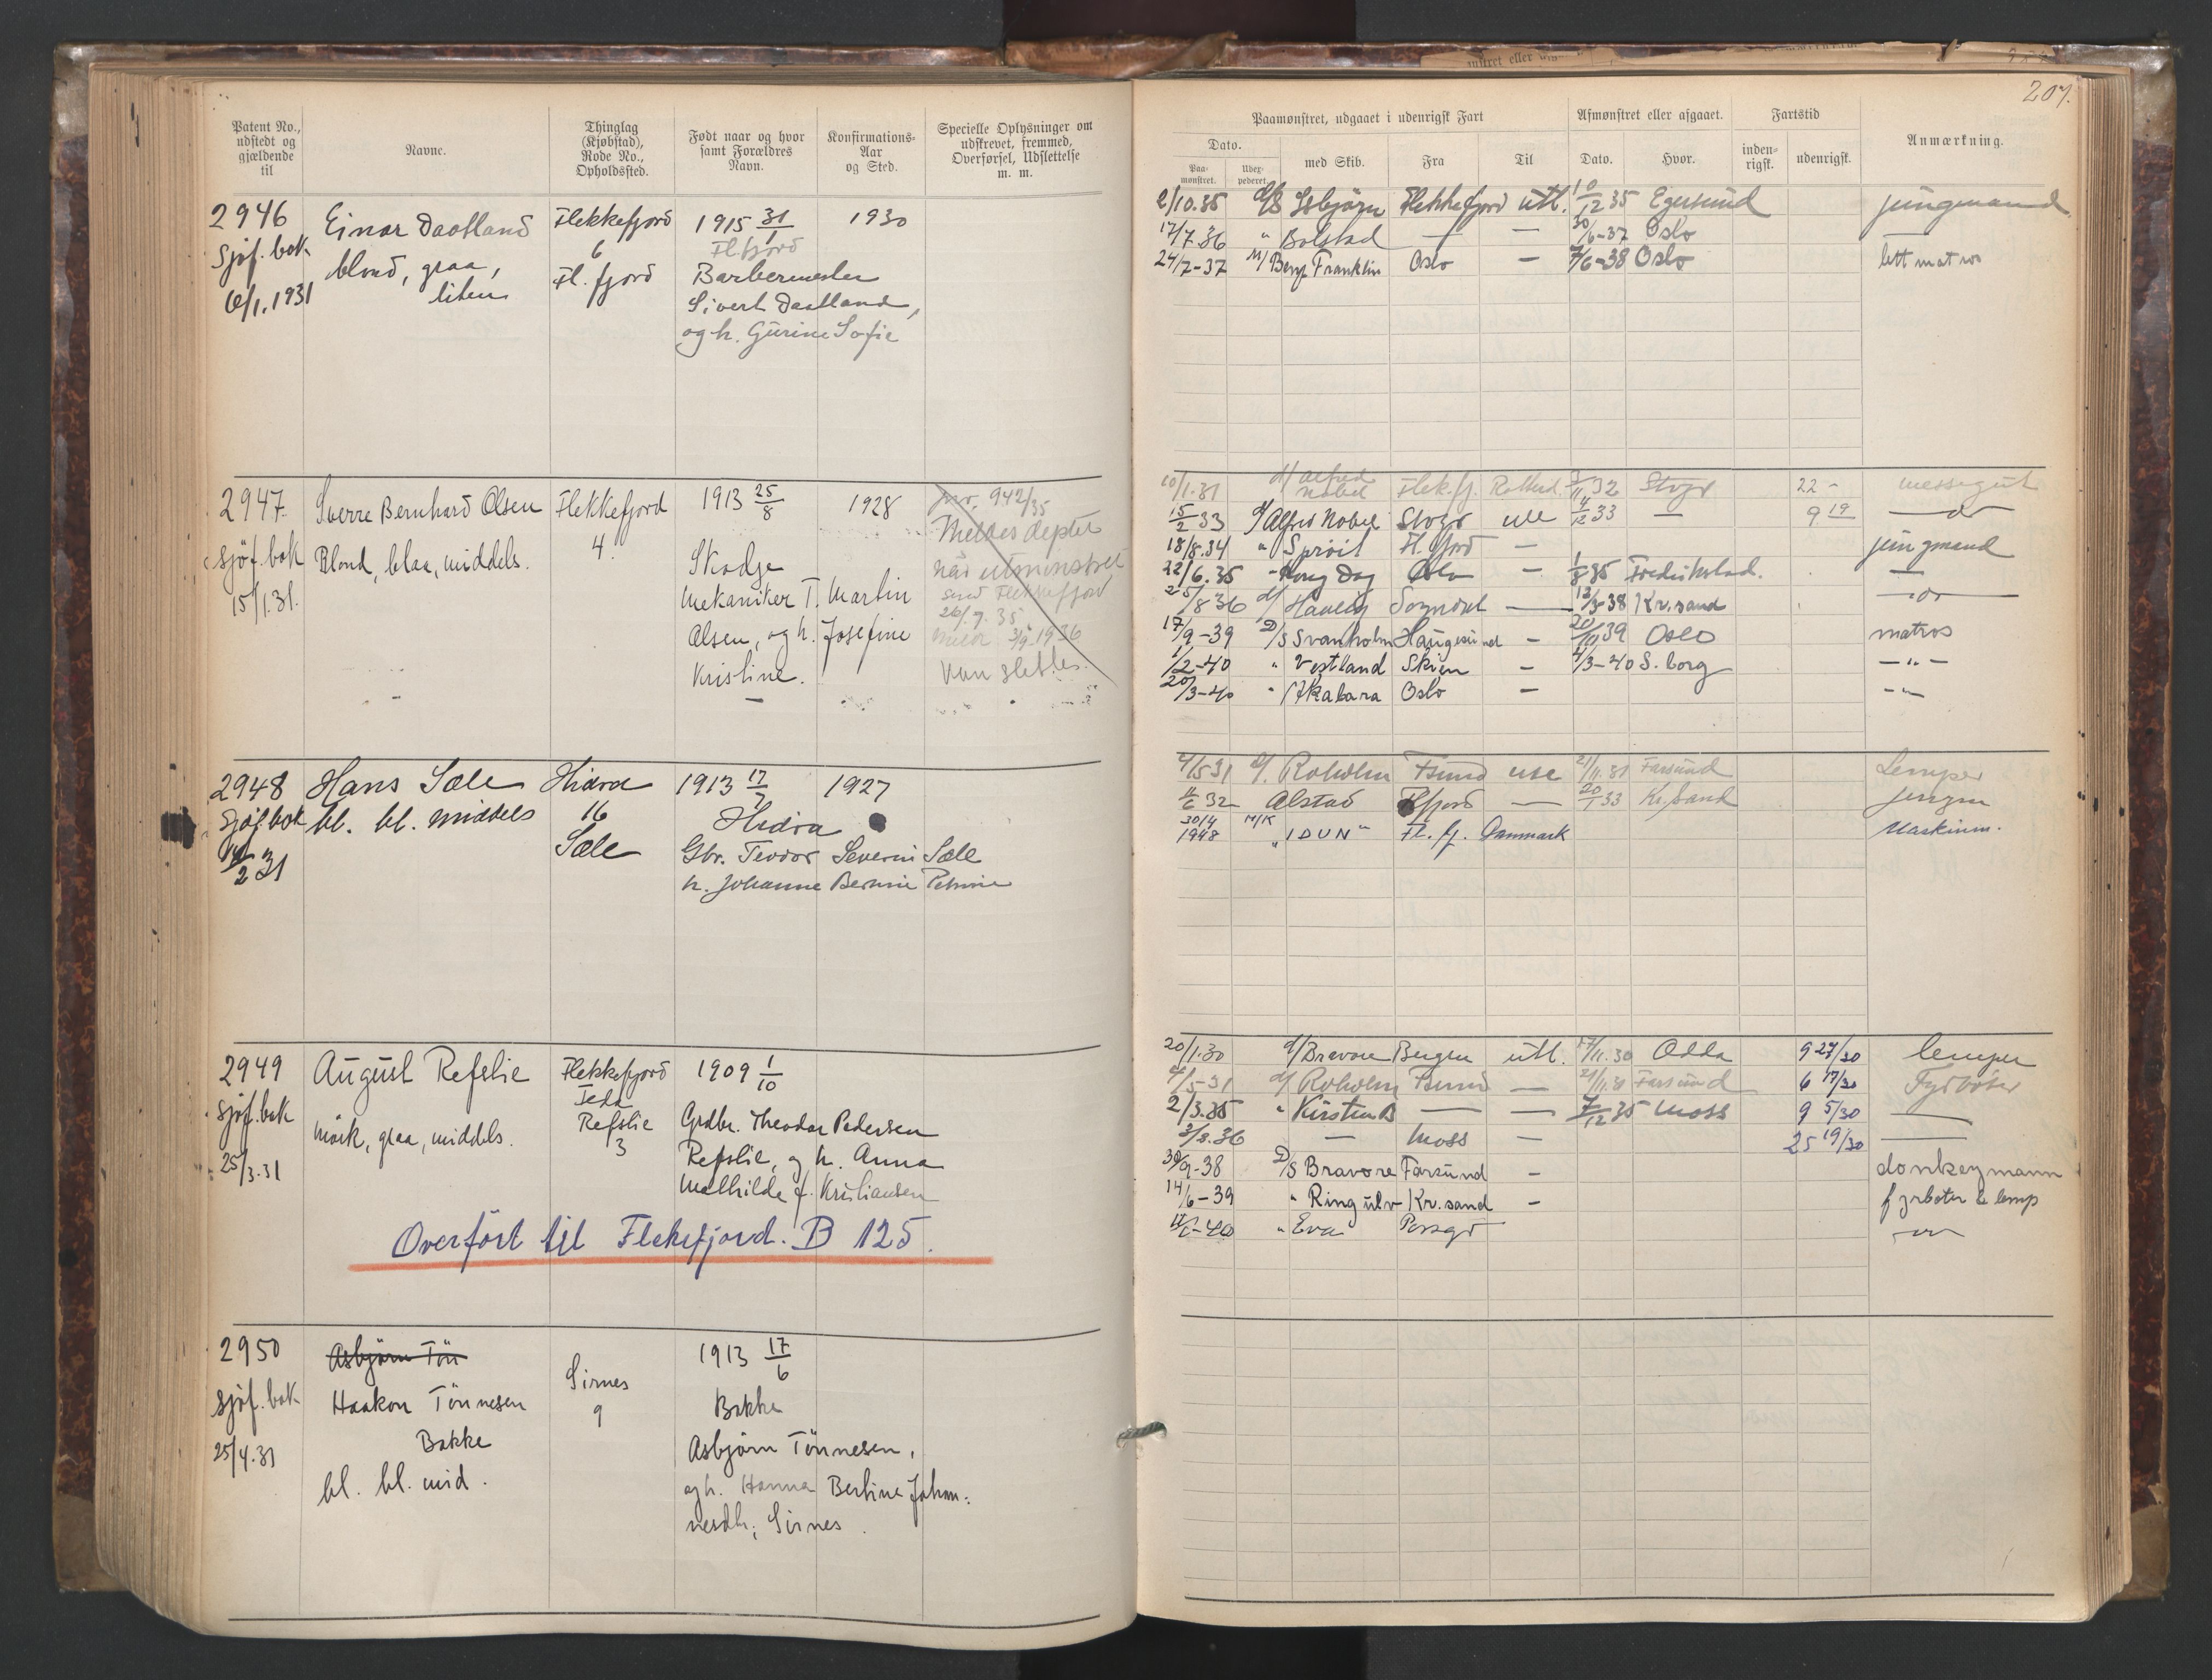 207.
Patent No., udstedt og gjældende til
Navne.
Thinglag (Kjøbstad), Rode No., Opholdssted.
Født naar og hvor samt Forældres Navn.
Konfirmations-Aar og Sted.
Specielle Oplysninger om udskrevet, fremmed, Overførsel, Udslettelse m. m.
Paamønstret, udgaaet i udenrigsk Fart
Afmønstret eller afgaaet.
Fartstid
Anmærkning.
Dato.
Paa-mønstret.
med Skib.
Fra
Til
Dato.
Hvor.
inden-rigsk.
udenrigsk.
2946
Sjøf. bok
6/1.1931
Einar Daatland
blond, graa,
liten
Flekkefjord
6
Fl. fjord
1915 31/1
Fl.fjord
Barbermester
Sivert Daatland,
og h. Gurine Sofie
1930
2/10.35 Isbjørn Flekkefjord utl. 10/12 35 Egersund jungmand
17/7.36 " Bolstad — — 30/6-37 Oslo
24/7-37 M/ Benj. Franklin Oslo — 7/6-38 Oslo lett matros
2947
Sjøf. bok
15/1.31.
Sverre Bernhard Olsen
Blond, blaa, middels.
Flekkefjord
4.
1913 25/8
Skodje
Mekaniker T. Martin
Olsen, og h. Josefine
Kristine.
1928
jnr. 942/35
Meldes deptet
når utmønstret
send Flekkefjord
26/7.35
3/9.1936
kan slettes.
10/1.31 d/ Alfred Nobel Flek.fj. 32 22 – messegut
15/2 33 d/ Alfred Nobel 4/12 33 — 9 19 — do
18/8.34 " Sprøit Fl. fjord — jungmand
22/6.35 " Kong Dag Oslo — 1/8 35 Fredrikstad. —
25/8 36 d/ Havlig Sogndal — 12/3-38 Kr.sand — do —
17/9-39 D/S Svanholm Haugesund — 20/10 39 Oslo matros
1/2-40 " Vestland Skien — 4/3-40 S. borg — " —
20/3-40 " Skabara Oslo — — " —
2948
Sjøf.bok
31
Hans Sæle
bl. bl. middels
Hidra
16
Sæle
1913 17/7
Hidra
Gbr. Teodor Severin Sæle
h. Johanne Bernine Petrine
1927
4/5 31 d/. Roholm Fsund utl 21/11.31 Farsund Lemper
32 Alstad Flfjord — 20/1 33 Kr.sand jungm
30/4 1948 M/K "IDUN" Fl. fj. Danmark Maskinm.
2949
Sjøf.bok
25/3.31
August Refslie
mørk, graa, middels.
Flekkefjord
Feda
Refslie
3
1909 1/10
Grdbr. Theodor Pedersen
Refslie, og h. Anna
Mathilde f. Kristiansen
Overført til Flekkefjord. B 125.
20/1.30 d/ Bravore Bergen utl. 17/11.30 Odda 9 27/30 lemper
4/5-31 d/ Roholm Fsund — 21/11.31 Farsund 6 17/30 Fyrbøter
2/3.35 " Kirsten B — — 7/12 35 Moss 9 5/30 —
3/8.36 — Moss — 25 19/30 —
30/9-38 D/S Bravore Farsund — donkeymann
14/6-39 " Ringulv Kr.sand — fyrbøter & lemp
40 " Eva Porsgr
2950
Sjøf. bok
25/4.31
Asbjørn Tøn
Haakon Tønnesen
Bakke
bl. bl. mid.
Sirnes
9
1913 17/6
Bakke
Asbjørn Tønnesen,
og h. Hanna Bertine Johan-
nesdtr; Sirnes.